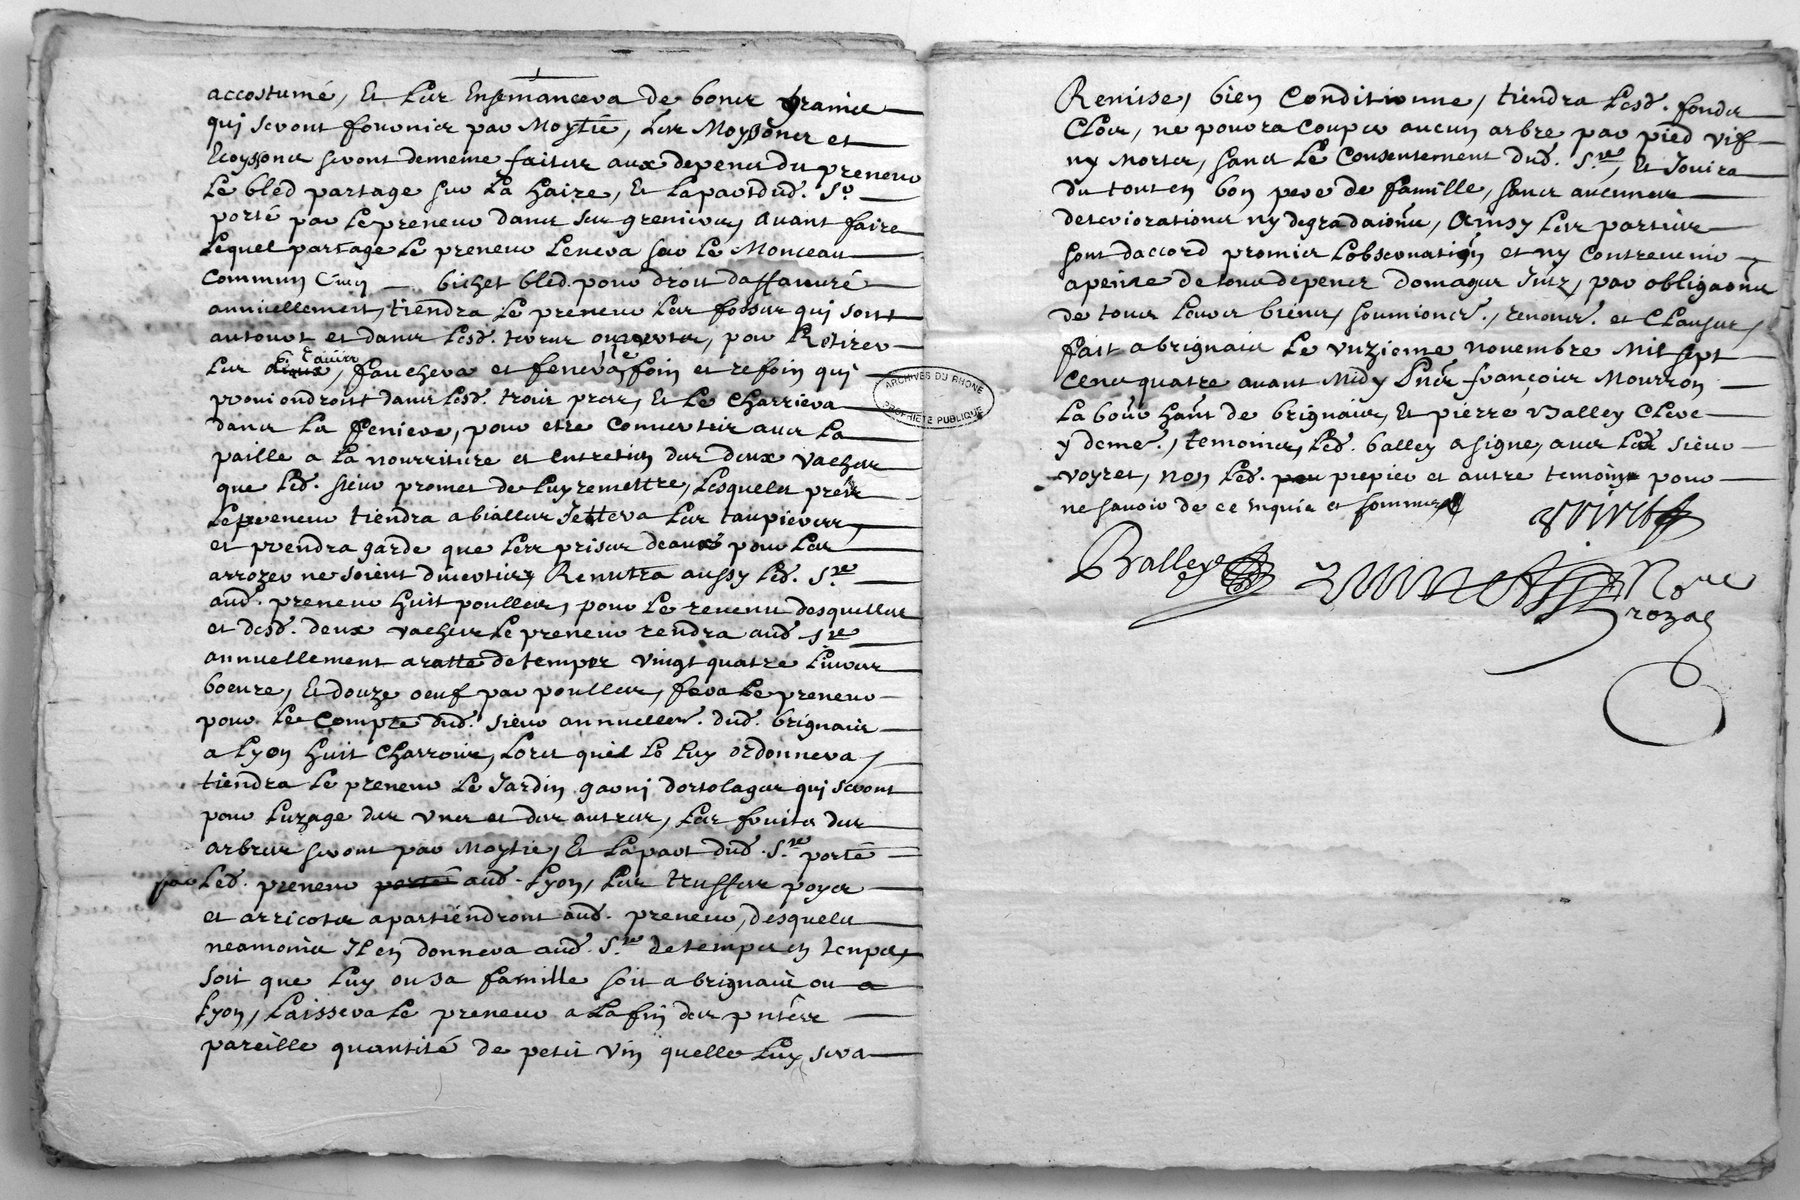 accostumé, Et Les Ensemancera de bones graines
qui seront fournies par Moytié, Les Moyssones et
Ecoyssones seront dememe faites aux depens du preneur
Le bled partagé sur La haire, Et La part dud. Sr.
porté par Le preneur dans ses greniers, avant faire
Lequel partage Le preneur Levera sur Le Monceau
commun Cinq bichet bled pour droit daffanure
annuellement, tiendra Le preneur Les fosses qui sont
autour et dans Lesd. terres ouvertes, pour Retirer
Les eaux, fauchera et fenera le foin et refoin qui
proviendront dans Lesd. trois pres, Et Le Charriera
dans La feniere, pour etre convertis avec La
paille a La nourriture et entretien des deux vaches
que Led. sieur promet de Luy remettre, Lesquels prés
Le preneur tiendra abialles Jettera Les taupieres,
et prendra garde que Les prises deaux pour Les
arrozer ne soient diverties, Remettra aussy Led. Sr.
aud. preneur huit poulles, pour Le revenu desquelles
et desd. deux vaches Le preneur rendra aud. sr
annuellement aratte de temps vingt quatre Livres
beure, Et douze oeuf par poulles, fera Le preneur
pour Le Compte dud. sieur annuellem. dud. brignais
a Lyon huit charrois, Lors quil Le Luy ordonnera,
tiendra Le preneur Le Jardin garni dortolages qui seront
pour Luzage des uns et des autres, Les fruits des
arbres seront par Moytié, Et La part dud. Sr. porté
par Led. preneur porté aud. Lyon, Les truffes poyes
et arricots apartiendront aud. preneur, desquels
neamoins Il en donnera aud. Sr. de temps en temps,
soit que Luy ou sa famille soit a brignais ou a
Lyon, Laissera Le preneur a La fin des pntes
pareille quantité de petit vin quelle Luy sera
ARCHIVES DU RHONE
PROPRIÉTÉ PUBLIQUE
Remise, bien Conditionné, tiendra Lesd. fonds
Clos, ne pourra couper aucun arbre par pied vif
ny morts, sans Le Consentement dud. Sr., Et Jouira
du tout en bon pere de famille, sans aucunes
deteriorations ny degradaons, Ainsy Les parties
sont daccord promis Lobservation et ny contrevenir
apeine de tous depens domages Intz, par obligaons
de tous Leurs biens, soumions., renons. et Clauses,
fait a brignais Le unzieme novembre Mil sept
Cens quatre avant Midy pns françois Mourron
Labour hant de brignais, Et pierre Balley Clerc
y deme., temoins, Led. balley a signe, avec Led. sieur
voyret, non Led. prepier et autre temoin pour
ne savoir de ce enquis et sommes
Balley
Nore
rozal